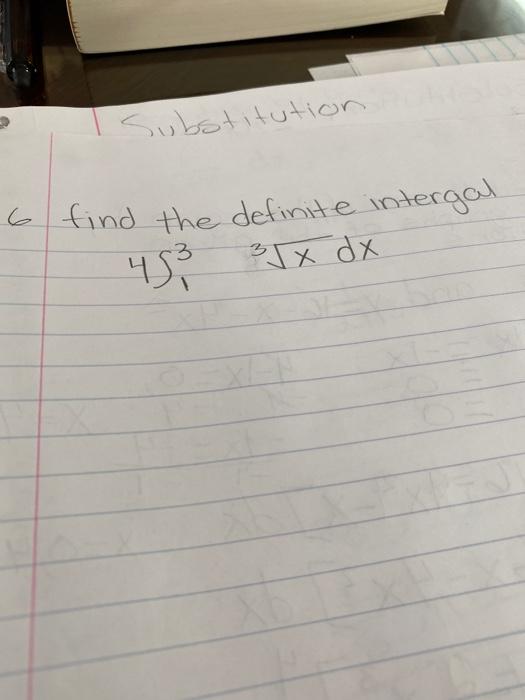 Substitution
6 find the definite intergal
4∫³₁ ³√x dx